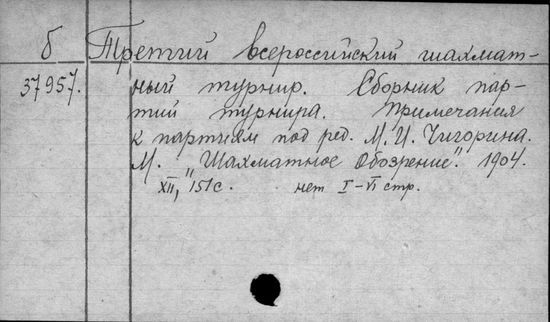 б Третий всероссийский шахмат-
37957. ный турнир. Сборник пар-
тий турнира. Примечания
к партиям под ред. М. И. Чигорина.
М. "Шахматное Обозрение". 1904.
XII, 151 с. нет I-VI стр.